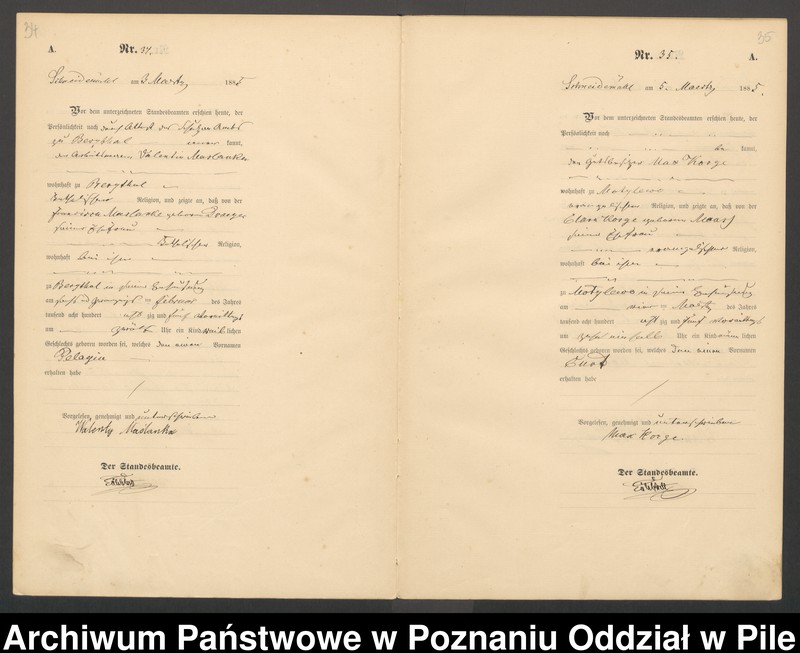 34
A.
Nr. 34.
Schneidemühl am 3 Maerz 1885
Vor dem unterzeichneten Standesbeamten erschien heute, der
Persönlichkeit nach durch Attest des Schulzen Amts
zu Bergthal kannt,
der Valentin Maslanka
wohnhaft zu Bergthal
katholischer Religion, und zeigte an, daß von der
Francisca Maslanka geborenen
seiner Ehefrau
katholischer Religion,
wohnhaft bei ihm
zu Bergthal in seiner Behausung
am sechs und zwanzigsten Februar des Jahres
tausend acht hundert achtzig und fünf Vormittags
um zwölf Uhr ein Kind weiblichen
Geschlechts geboren worden sei, welches den einen Vornamen
Pelagia
erhalten habe
Vorgelesen, genehmigt und unterschrieben
Walenty Maślanka
Der Standesbeamte.
35
Nr. 35.
A.
Schneidemühl am 5. Maerz 1885.
Vor dem unterzeichneten Standesbeamten erschien heute, der
Persönlichkeit nach
be kannt,
der Gutsbesitzer Max Korge
wohnhaft zu Motylewo
evangelischer Religion, und zeigte an, daß von der
Clara Korge geborenen Maass
seiner Ehefrau
evangelischer Religion,
wohnhaft bei ihm
zu Motylewo in seiner Behausung
am vier Maerz des Jahres
tausend acht hundert achtzig und fünf Vormittags
um zehn ein halb Uhr ein Kind männlichen
Geschlechts geboren worden sei, welches den einen Vornamen
Curt
erhalten habe
Vorgelesen, genehmigt und unterschrieben
Max Korge.
Der Standesbeamte.
Archiwum Państwowe w Poznaniu Oddział w Pile